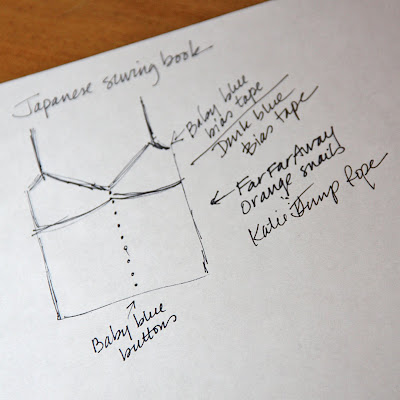 Japanese sewing book
Baby blue
bias tape
Dark blue
Bias tape
Far Far Away
orange snails
Katie Jump Rope
Baby blue
buttons